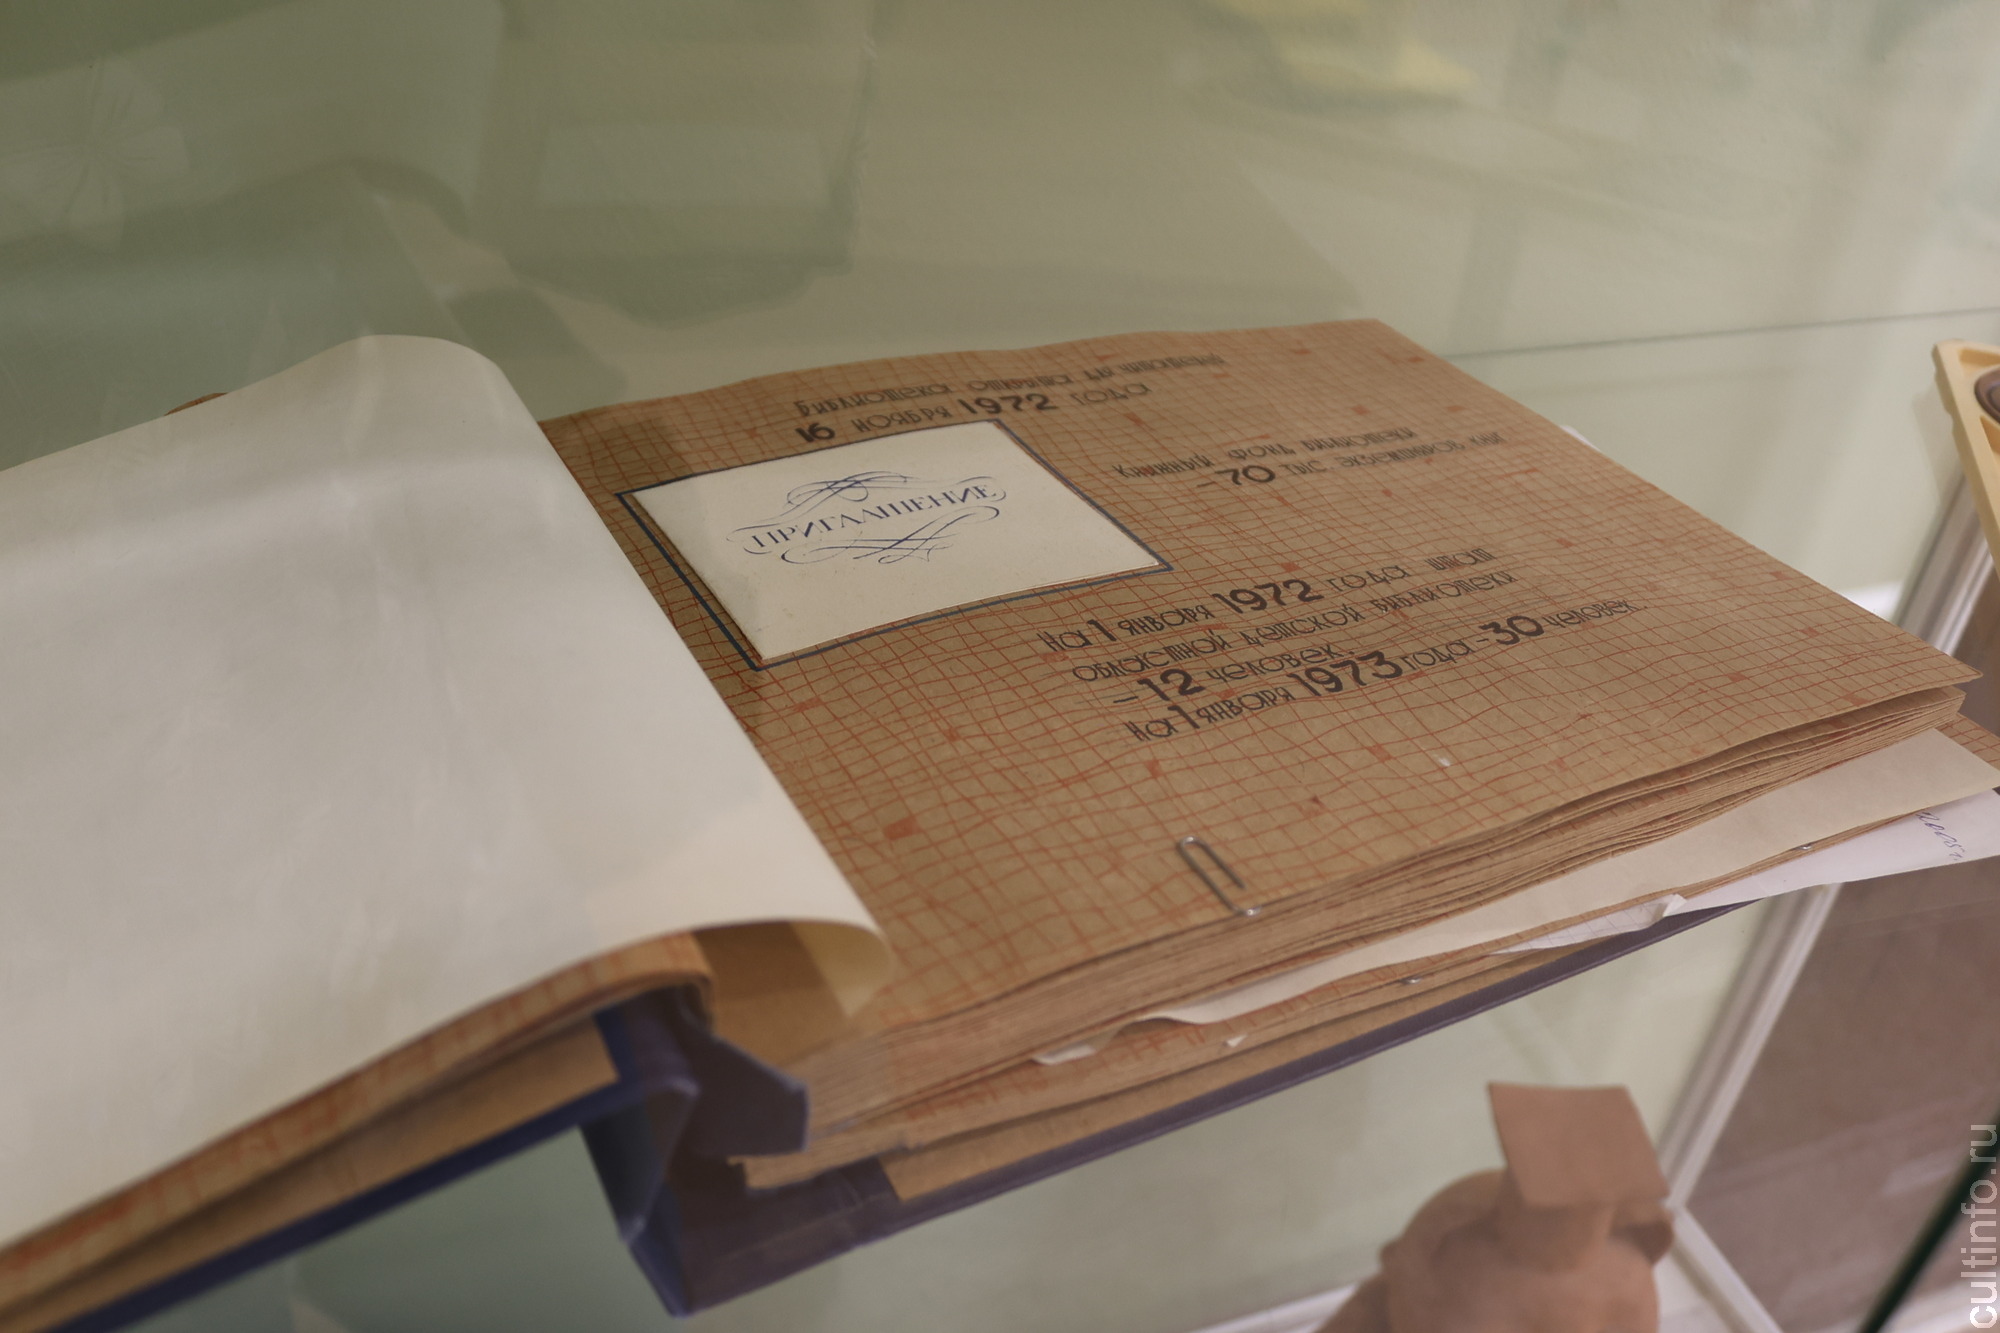 Библиотека открыта для читателей
16 ноября 1972 года
ПРИГЛАШЕНИЕ
Книжный фонд библиотеки
-70 тыс. экземпляров книг
На 1 января 1972 года штат
областной детской библиотеки
- 12 человек.
На 1 января 1973 года - 30 человек.
cultinfo.ru